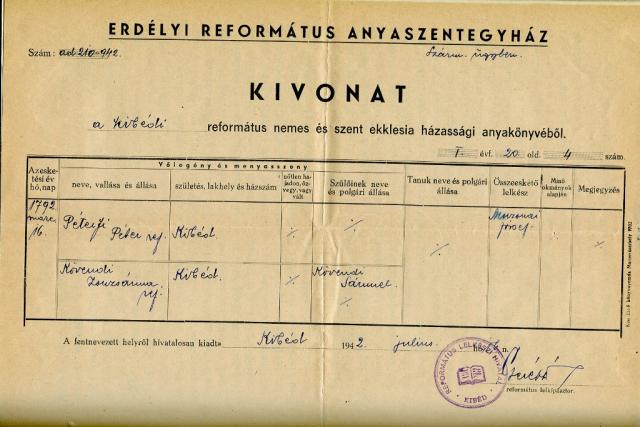 ERDÉLYI REFORMÁTUS ANYASZENTEGYHÁZ
Szám: ad 210-942. Szárm. ügyben.
KIVONAT
a Kibédi református nemes és szent ekklesia házassági anyakönyvéből.
I évf. 20 old. 4 szám.
Az esketési év hó, nap
Vőlegény és menyasszony
neve, vallása és állása
születés, lakhely és házszám
nőtlen hajadon, özvegy, vagy vált
Szülőinek neve és polgári állása
Tanuk neve és polgári állása
Összeeskető lelkész
Minő okmányok alapján
Megjegyzés
1792 márc. 16.
Péterfi Péter ref.
Kibéd.
József.
Kövendi Zsuzsánna ref.
Kibéd.
Kövendi Sámuel.
A fentnevezett helyről hivatalosan kiadta Kibéd 1942. július
református lelkipásztor.
REFORMÁTUS LELKÉSZI HIVATAL
KIBÉD